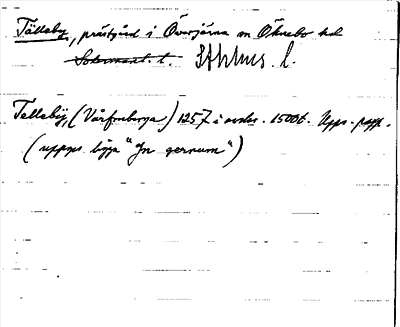 Tälleby, prästgård i Överjärna sn Öknebo hd
Södermanl. l. Sthlms l.
Telleby, (Vårfruberga) 1257 i avskr. 1500t. Upps. papp.
(uppges ligga "Jn gernum")